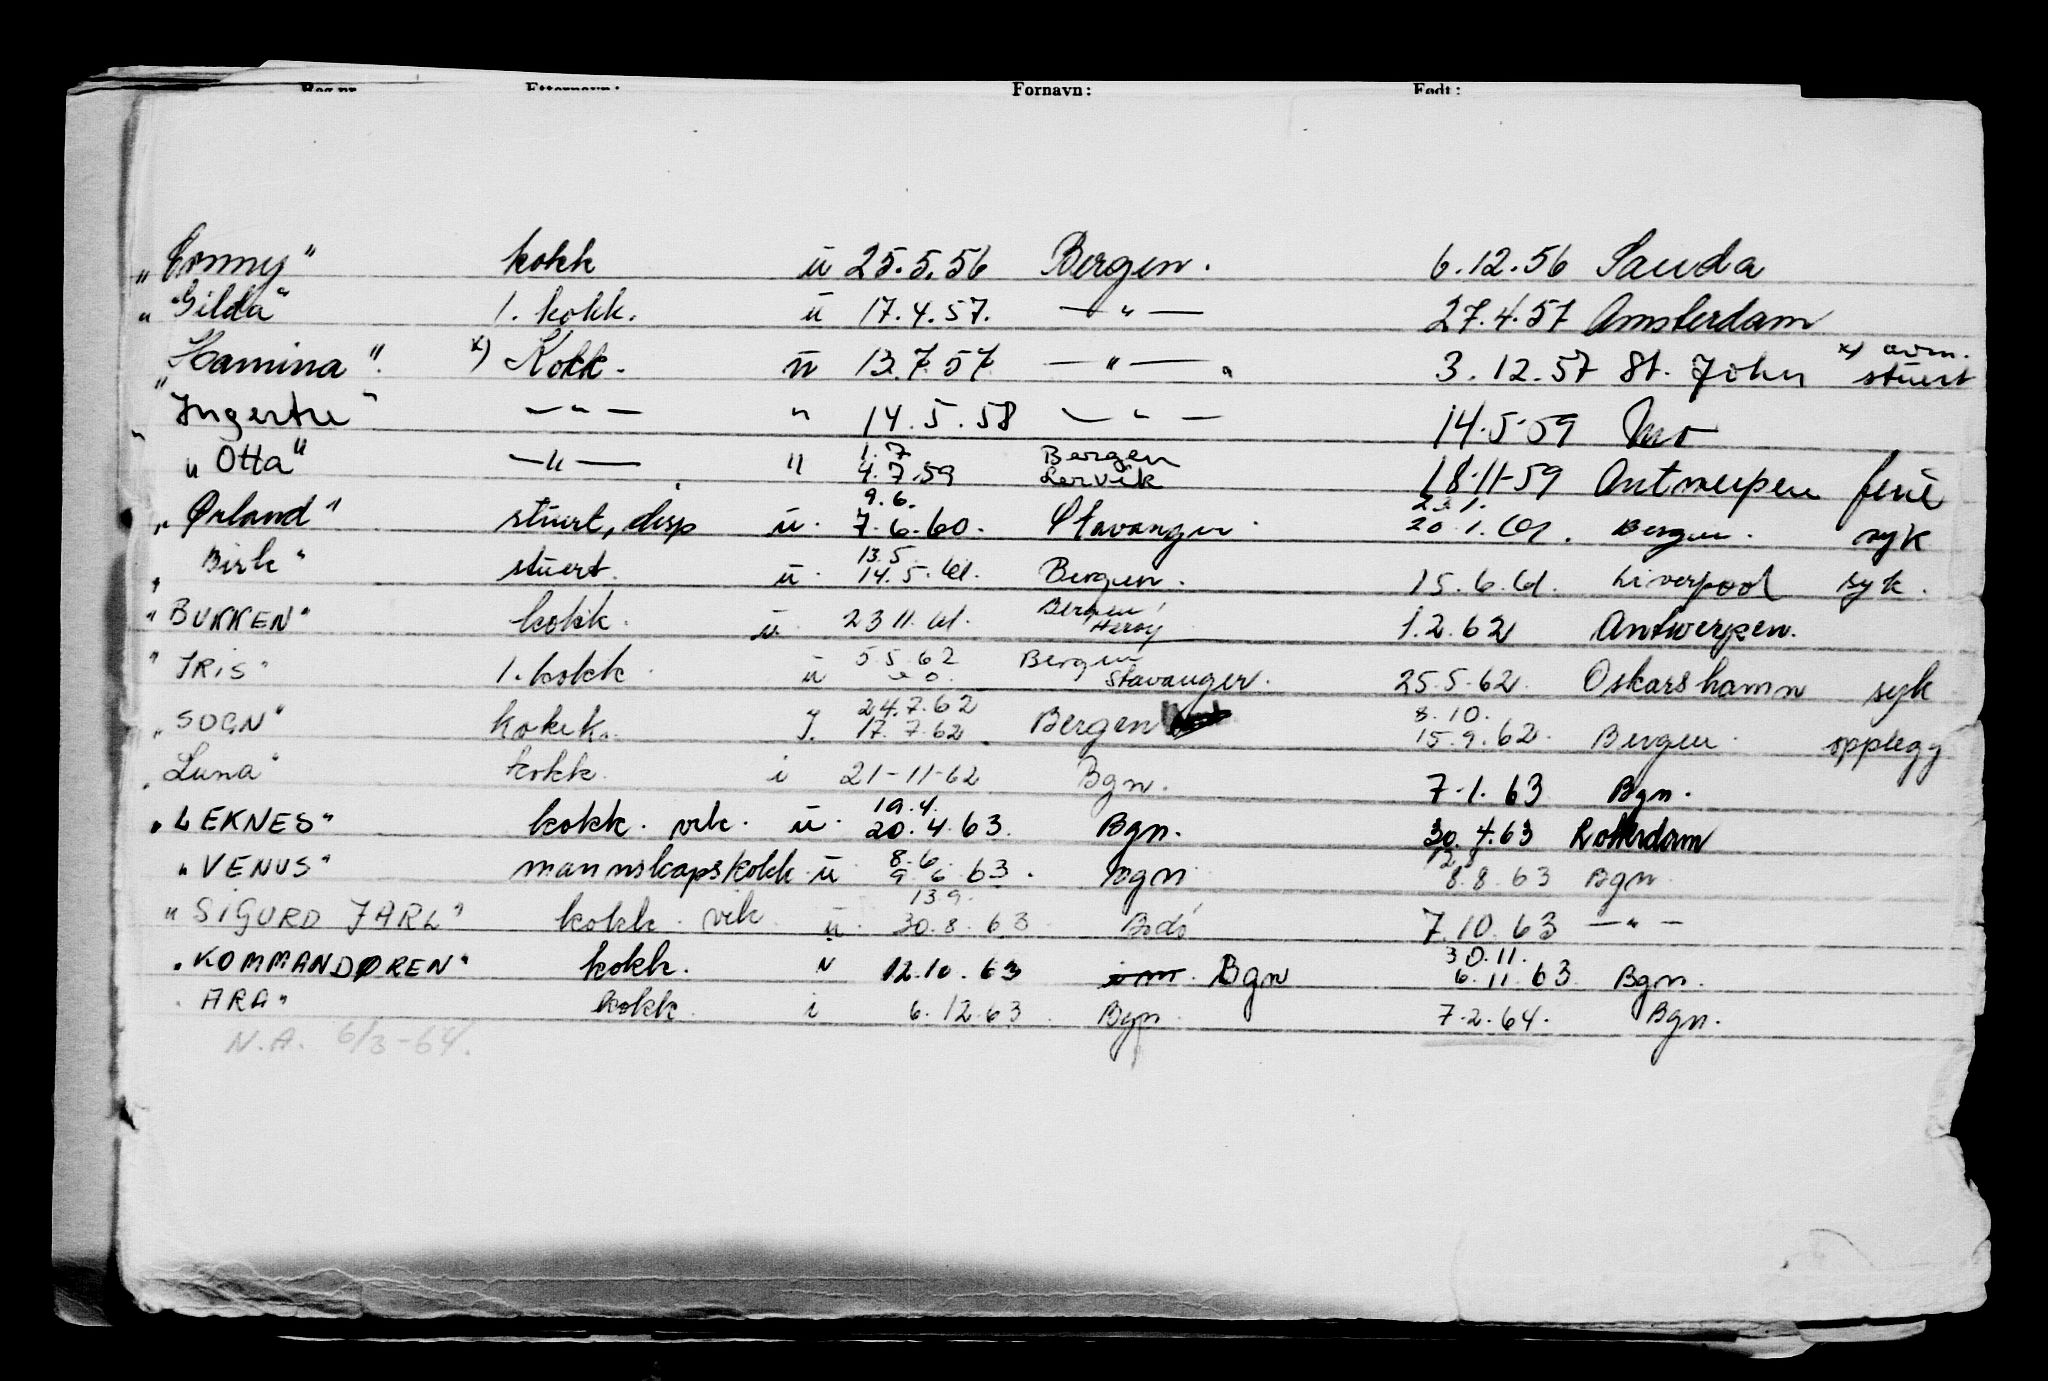 Reg.nr. Etternavn: Fornavn: Født:
„Conny" kokk ü 25.5.56 Bergen. 6.12.56 Sauda
„Gilda" 1. kokk. ü 17.4.57. — " — 27.4.57 Amsterdam
„Hamina". x) Kokk. ü 13.7.57 — " — 3.12.57 St. John x) avm. stuert
„Ingertre" — " — " 14.5.58 — " — 14.5.59 Mo
„Otta" — " — " 1.7 4.7.59 Bergen Lervik 18-11-59 Antwerpen ferie
„Ørland" stuert, disp ü. 9.6. 7.6.60. Stavanger. 23.1. 20.1.61. Bergen. syk
„Birk" stuert. ü. 13.5. 14.5.61. Bergen. 15.6.61. Liverpool syk.
"BUKKEN" kokk. ü. 23 11.61. Bergen, Herøy 1.2.62 Antwerpen.
"IRIS" 1. kokk. ü 5.5.62 Bergen Stavanger. 25.5.62. Oskarshamn syk
„SOGN" kokk. J. 24.7.62 17.7.62. Bergen 8.10. 15.9.62. Bergen. opplegg
„Luna" kokk. i 21-11-62 Bgn. 7.1.63 Bgn.
„LEKNES" kokk. vik. ü. 19.4. 20.4.63. Bgn. 30.4.63 Rotterdam
„VENUS" mannskapskokk ü. 8.6. 9.6.63. Bgn 12.8 8.8.63 Bgn.
"SIGURD JARL" kokk. vik. ü. 13.9. 30.8.63 Bodø 7.10.63 — " —
„KOMMANDØREN" kokk. " 12.10.63 Bgn 30.11. 6.11.63 Bgn.
ARA" kokk. i 6.12.63. Bgn. 7.2.64. Bgn.
N.A. 6/3-64.